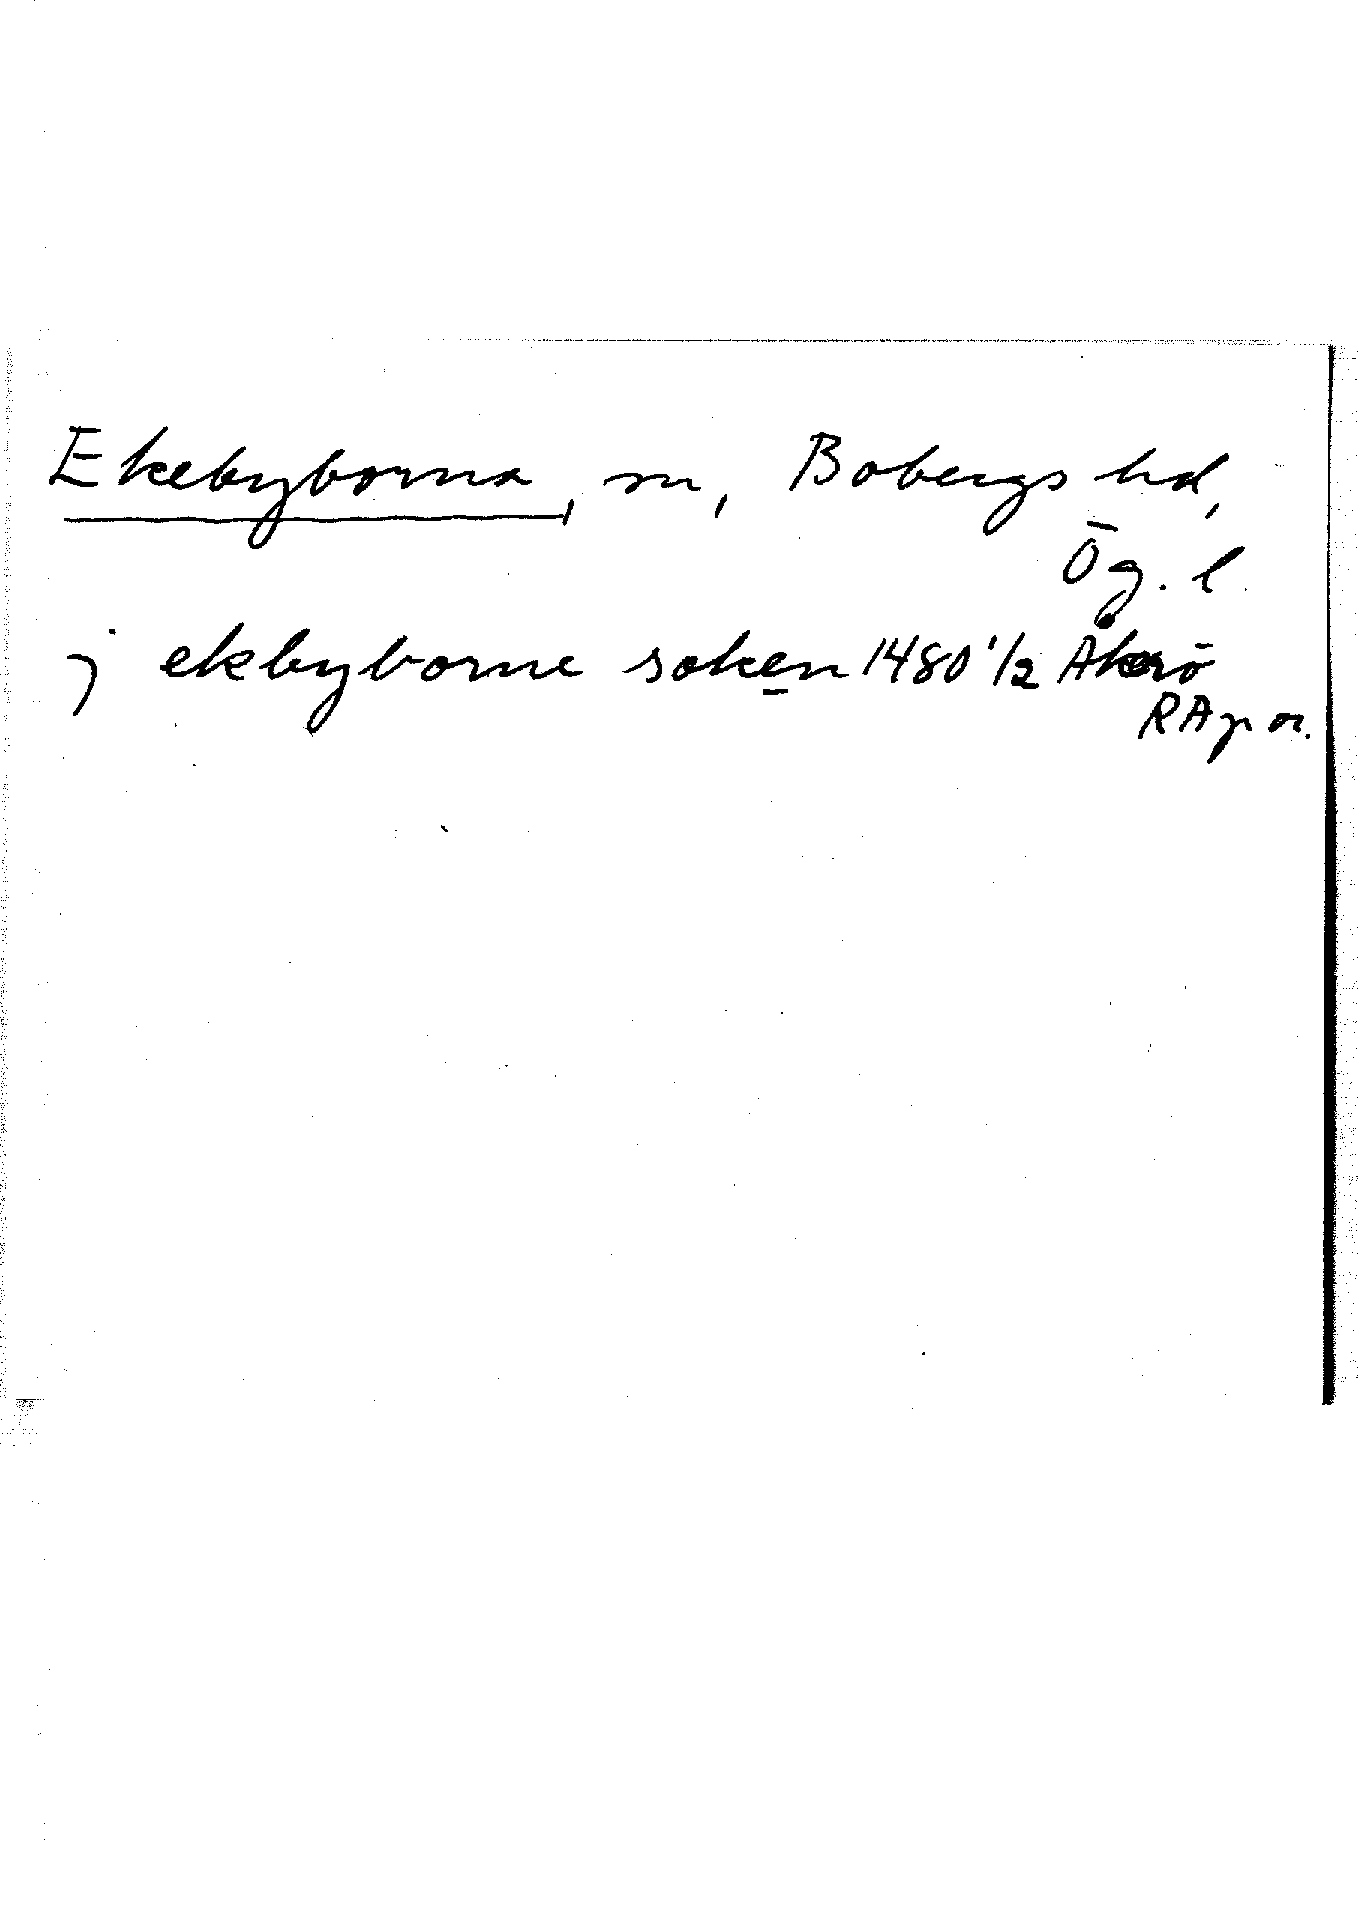 Ekebyborna, sn, Bobergs hd,
Ög. l.
j ekbyborne soken 1480 1/2 Åkerö
RA p or.